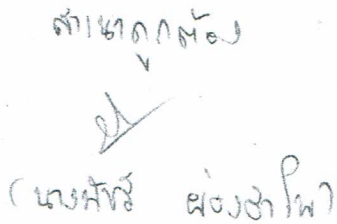 สำเนาถูกต้อง
(นางพัชรี ผ่องอำไพ)